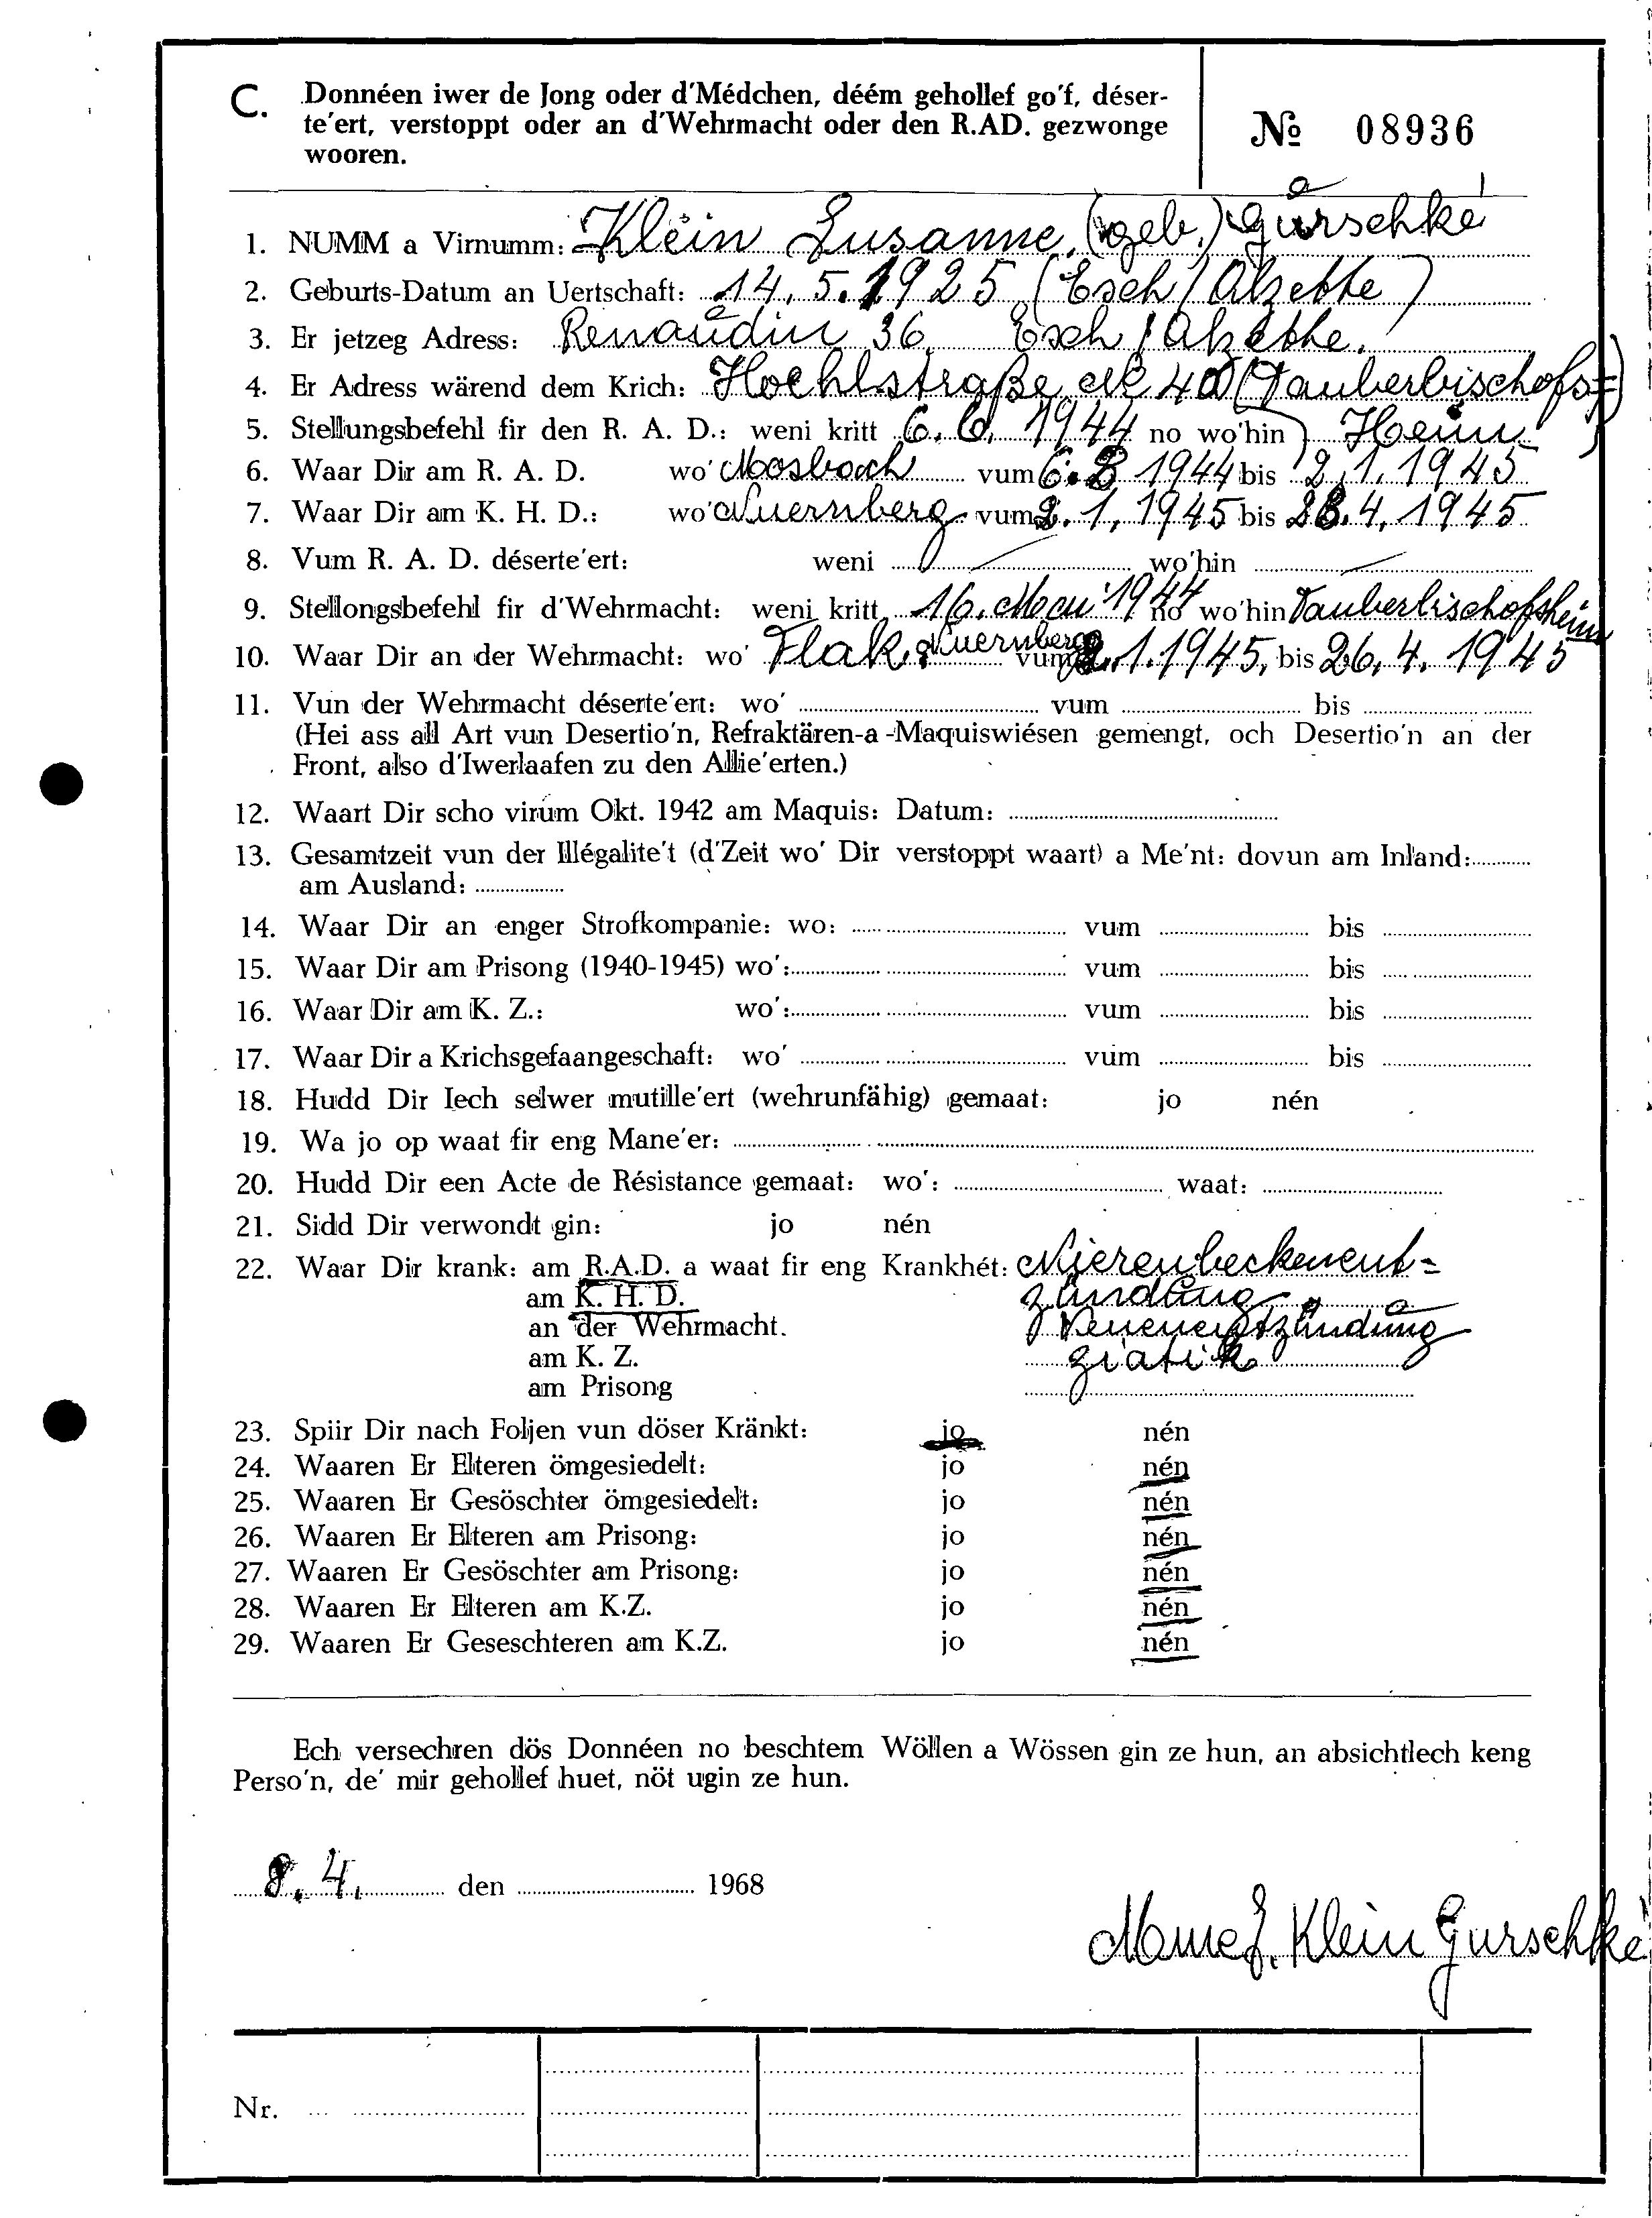 C. Donnéen iwer de Jong oder d'Médchen, déém gehollef go'f, déser-
te'ert, verstoppt oder an d'Wehrmacht oder den R.AD. gezwonge
wooren.
No 08936
1. NUMM a Virnumm: Klein Susanne, (geb.) Gurschké
2. Geburts-Datum an Uertschaft: 14. 5. 1925 (Esch/Alzette)
3. Er jetzeg Adress: Renaudin 36 Esch/Alzette.
4. Er Adress wärend dem Krich: Hochlstraße 40 (Tauberbischofs=)
5. Stellungsbefehl fir den R. A. D.: weni kritt 6. 6. 1944 no wo'hin Heim
6. Waar Dir am R. A. D. wo' Mosbach vum 6. 1944 bis 2. 1. 1945
7. Waar Dir am K. H. D.: wo' Nuernberg vum 2. 1. 1945 bis 28. 4. 1945
8. Vum R. A. D. déserte'ert: weni wo'hin
9. Stellongsbefehl fir d'Wehrmacht: weni kritt 16. Mai 1944 no wo'hin Tauberbischofsheim
10. Waar Dir an der Wehrmacht: wo' Flak. Nuernberg vum 2. 1. 1945, bis 26. 4. 1945
11. Vun der Wehrmacht déserte'ert: wo' vum bis
(Hei ass all Art vun Desertio'n, Refraktären-a-Maquiswiésen gemengt, och Desertio'n an der
Front, also d'Iwerlaafen zu den Allie'erten.)
12. Waart Dir scho virum Okt. 1942 am Maquis: Datum:
13. Gesamtzeit vun der Illégalite't (d'Zeit wo' Dir verstoppt waart) a Me'nt: dovun am Inland:
am Ausland:
14. Waar Dir an enger Strofkompanie: wo: vum bis
15. Waar Dir am Prisong (1940-1945) wo': vum bis
16. Waar Dir am K. Z.: wo': vum bis
17. Waar Dir a Krichsgefaangeschaft: wo' vum bis
18. Hudd Dir Iech selwer mutille'ert (wehrunfähig) gemaat: jo nén
19. Wa jo op waat fir eng Mane'er:
20. Hudd Dir een Acte de Résistance gemaat: wo': waat:
21. Sidd Dir verwondt gin: jo nén
22. Waar Dir krank: am R.A.D. a waat fir eng Krankhét: Nierenbeckenent=
am K. H. D. zündung
an der Wehrmacht. Venenentzündung
am K. Z. ziatik
am Prisong
23. Spiir Dir nach Foljen vun döser Kränkt: jo nén
24. Waaren Er Elteren ömgesiedelt: jo nén
25. Waaren Er Gesöschter ömgesiedelt: jo nén
26. Waaren Er Elteren am Prisong: jo nén
27. Waaren Er Gesöschter am Prisong: jo nén
28. Waaren Er Elteren am K.Z. jo nén
29. Waaren Er Geseschteren am K.Z. jo nén
Ech versechren dös Donnéen no beschtem Wöllen a Wössen gin ze hun, an absichtlech keng
Perso'n, de' mir gehollef huet, nöt ugin ze hun.
8. 4. den 1968
Klein Gurschké
Nr.